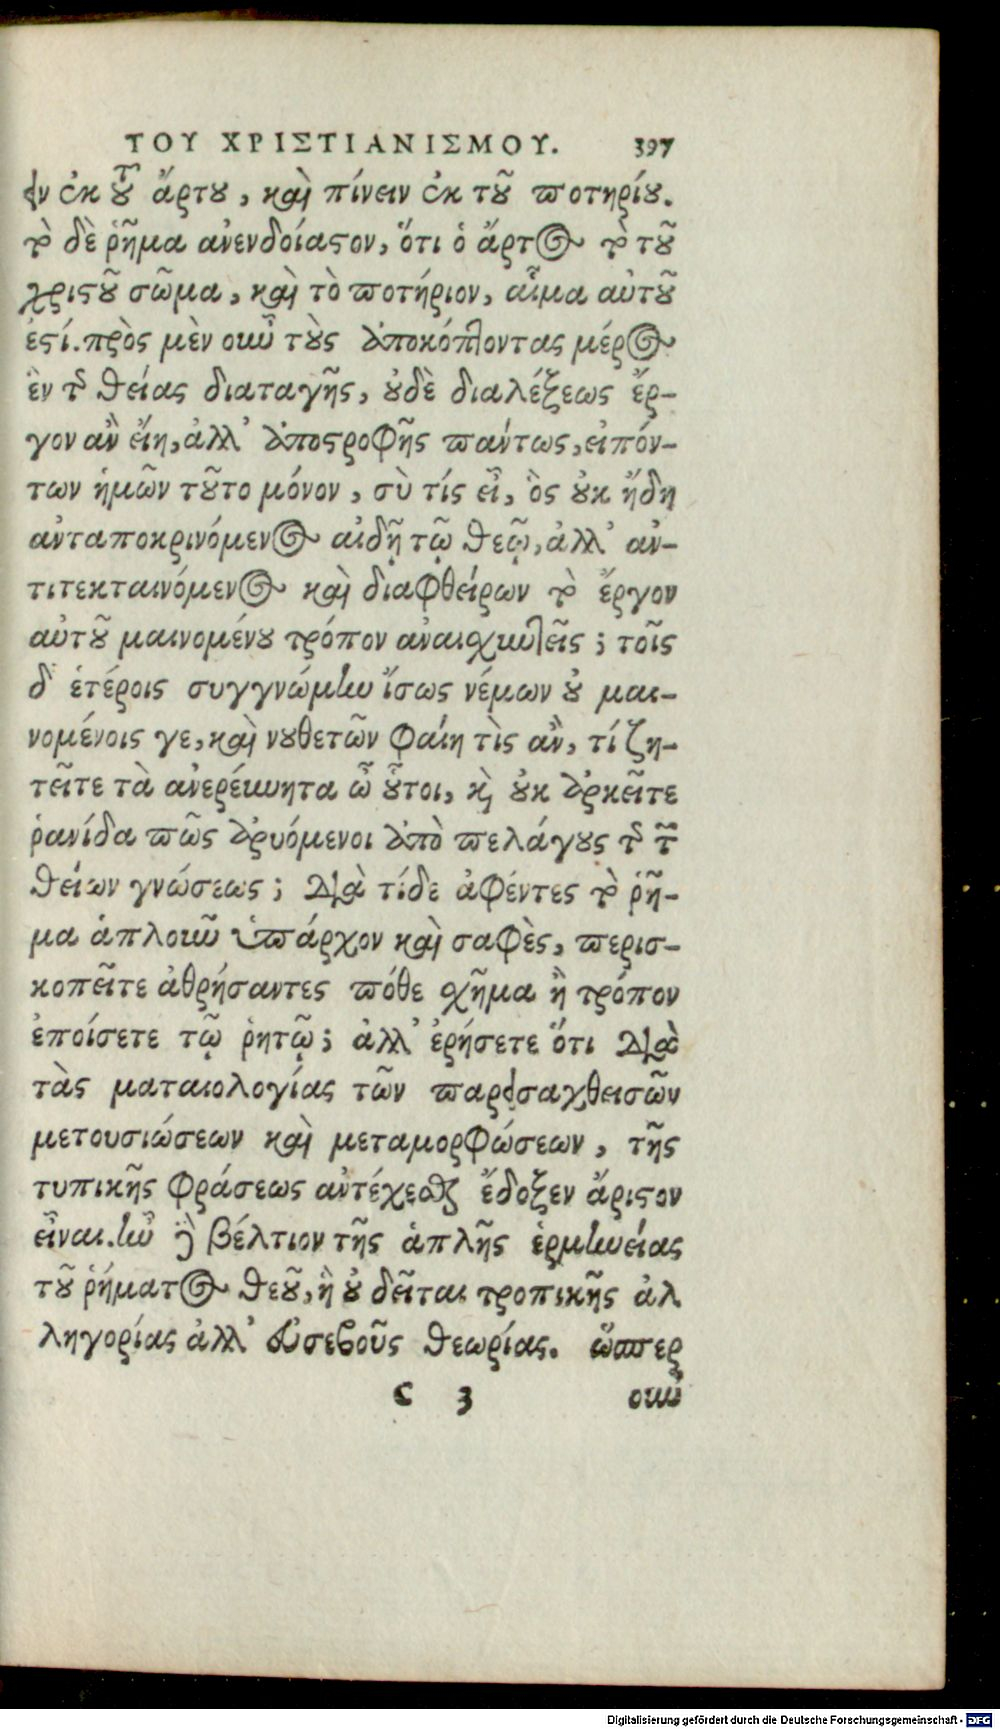 ΤΟΥ ΧΡΙΣΤΙΑΝΙΣΜΟΥ. 397
ειν ἐκ τοῦ ἄρτου, καὶ πίνειν ἐκ τοῦ ποτηρίου.
τὸ δὲ ῥῆμα ἀνενδοίαστον, ὅτι ὁ ἄρτος τὸ τοῦ
χριστοῦ σῶμα, καὶ τὸ ποτήριον, αἷμα αὐτοῦ
ἐστί. πρὸς μὲν οὖν τοὺς ἀποκόπτοντας μέρος
ἓν τῆς θείας διαταγῆς, οὐδὲ διαλέξεως ἔρ-
γον ἂν εἴη, ἀλλ' ἀποστροφῆς πάντως, εἰπόν-
των ἡμῶν τοῦτο μόνον, σὺ τίς εἶ, ὃς οὐκ ἤδη
ἀνταποκρινόμενος αἰδῇ τῷ θεῷ, ἀλλ' ἀν-
τιτεκταινόμενος καὶ διαφθείρων τὸ ἔργον
αὐτοῦ μαινομένου τρόπον ἀναισχυντεῖς; τοῖς
δ' ἑτέροις συγγνώμην ἴσως νέμων οὐ μαι-
νομένοις γε, καὶ νουθετῶν φαίη τὶς ἂν, τί ζη-
τεῖτε τὰ ἀνερεύνητα ὦ οὗτοι, καὶ οὐκ ἀρκεῖτε
ῥανίδα πῶς ἀρυόμενοι ἀπὸ πελάγους τῆς τῶν
θείων γνώσεως; διὰ τίδε ἀφέντες τὸ ῥῆ-
μα ἁπλοῦν ὑπάρχον καὶ σαφὲς, περισ-
κοπεῖτε ἀθρήσαντες πόθε σχῆμα ἢ τρόπον
ἐποίσετε τῷ ῥητῷ; ἀλλ' ἐρήσετε ὅτι διὰ
τὰς ματαιολογίας τῶν παρεισαχθεισῶν
μετουσιώσεων καὶ μεταμορφώσεων, τῆς
τυπικῆς φράσεως ἀντέχεσθαι ἔδοξεν ἄριστον
εἶναι. ἦν γὰρ βέλτιον τῆς ἁπλῆς ἑρμηνείας
τοῦ ῥήματος θεοῦ, ἣ οὐ δεῖται τροπικῆς ἀλ
ληγορίας ἀλλ' εὐσεβοῦς θεωρίας. ὥσπερ
C 3 οὖν
Digitalisierung gefördert durch die Deutsche Forschungsgemeinschaft - DFG